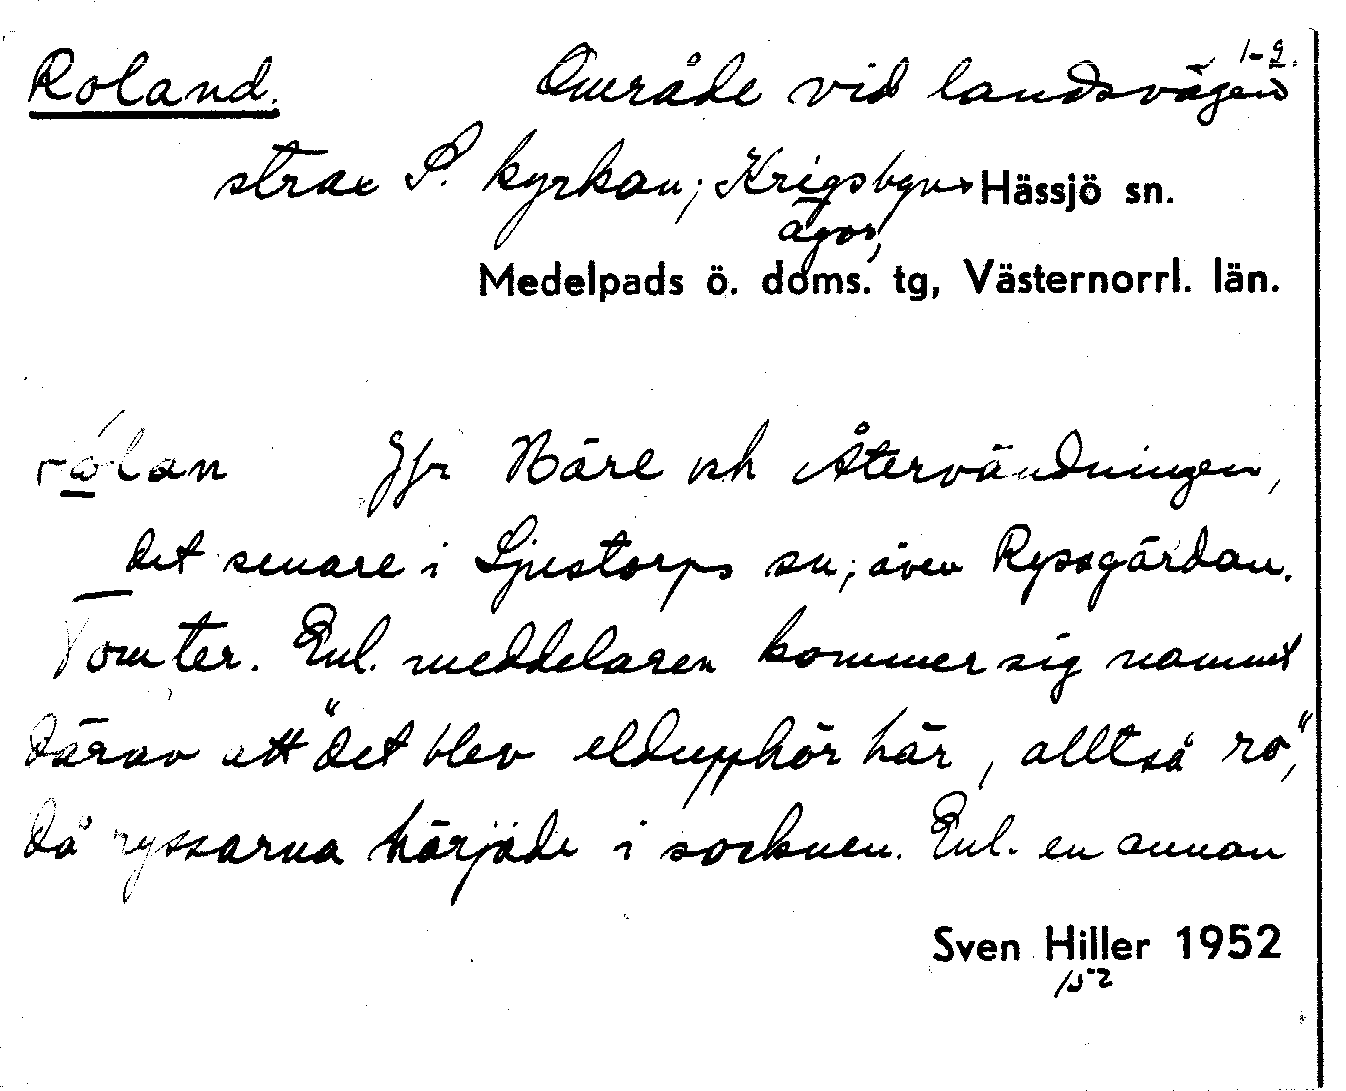 1-2.
Roland. Område vid landsvägen
strax S. kyrkan; Krigsbyns Hässjö sn.
ägor,
Medelpads ö. doms. tg, Västernorrl. län.
rólan Jfr Häre och Återvändningen,
det senare i Ljustorps sn; även Ryssgärdan.
Tomter. Enl. meddelaren kommer sig namnet
därav att "det blev eldupphör här, alltså ro",
då ryssarna härjade i socknen. Enl. en annan
Sven Hiller 1952
152